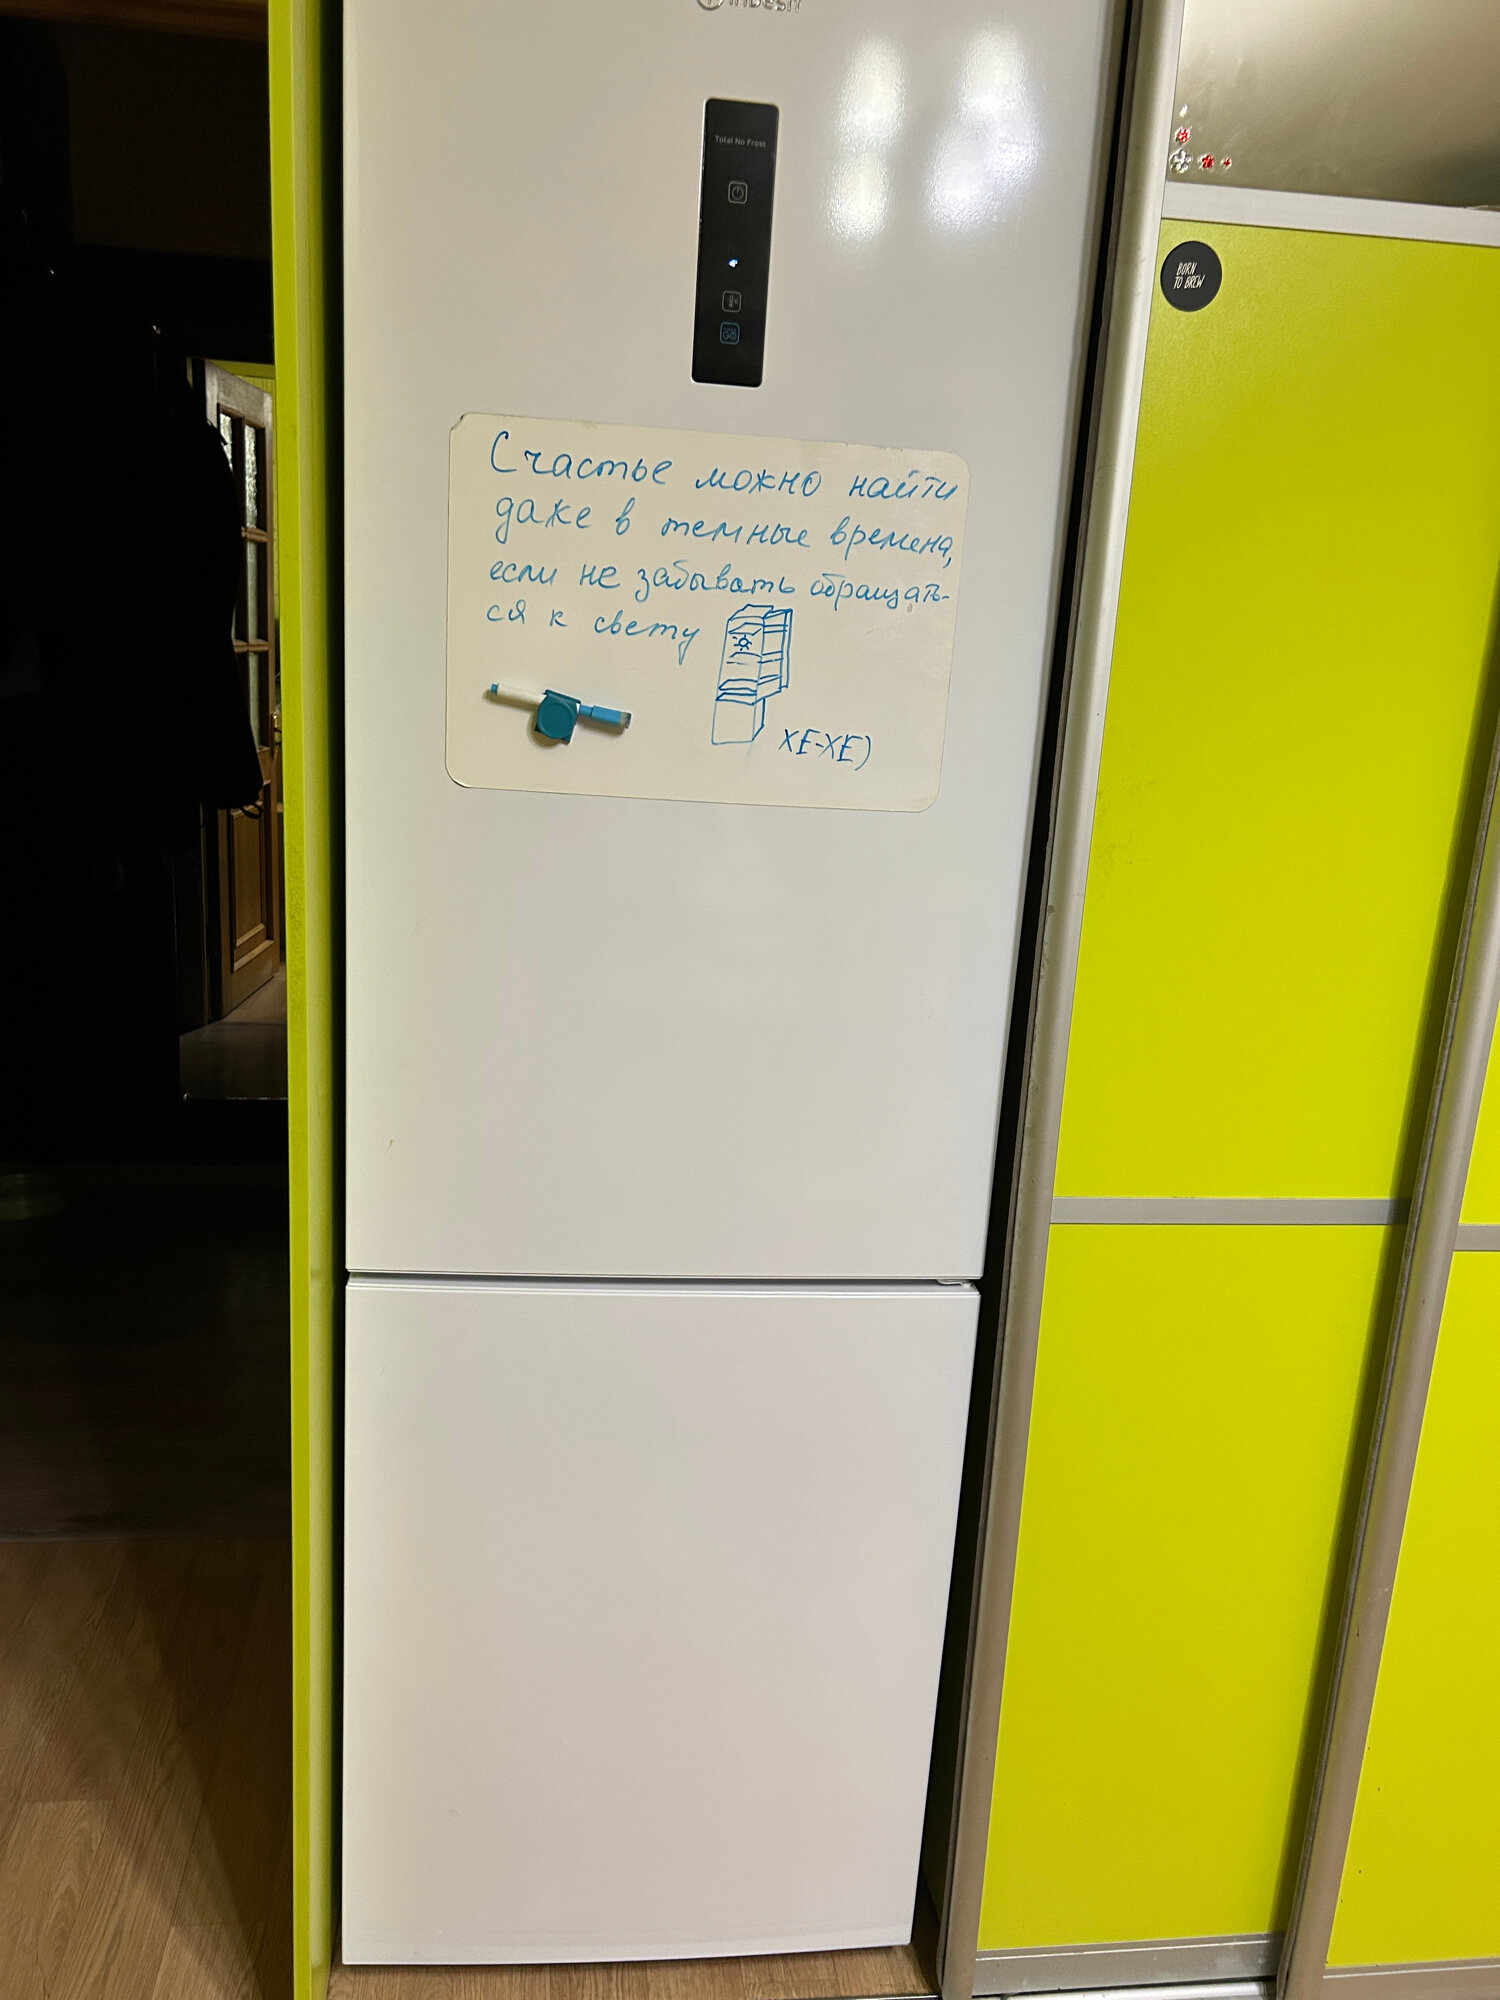 INDESIT
Total No Frost
BORN
TO BREW
Счастье можно найти
даже в темные времена,
если не забывать обращать-
ся к свету
ХЕ-ХЕ)